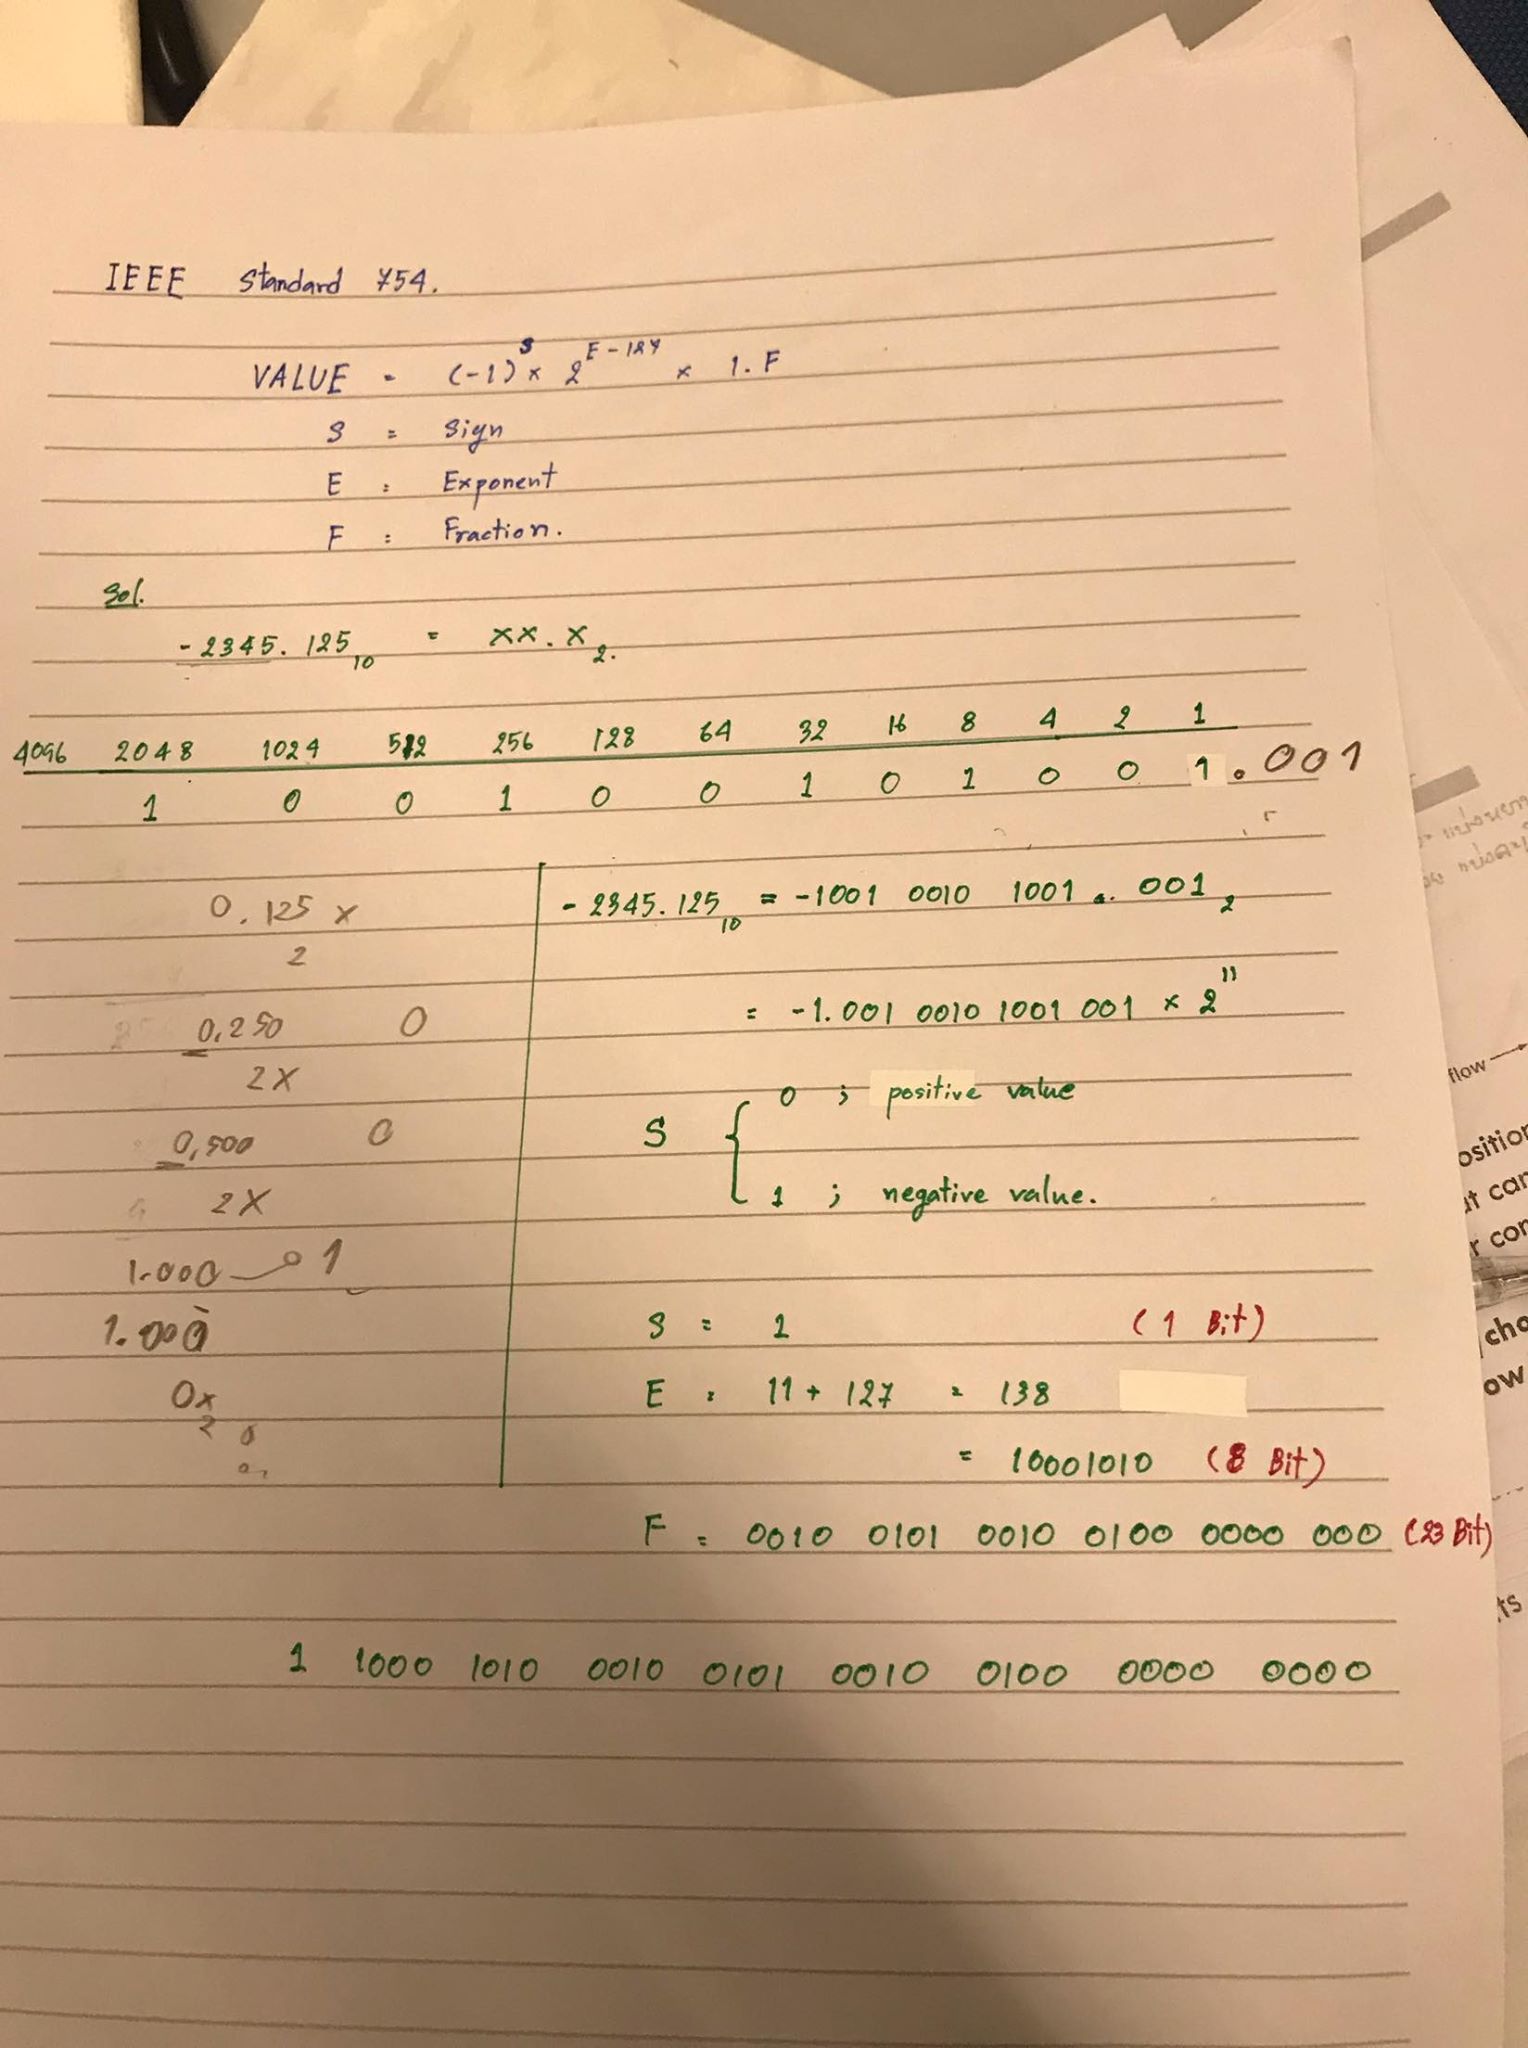 IEEE Standard 754.
VALUE = (-1)^S × 2^E-127 × 1.F
S = Sign
E : Exponent
F : Fraction.
Sol.
-2345.125₁₀ = XX.X₂.
4096 2048 1024 512 256 128 64 32 16 8 4 2 1
1 0 0 1 0 0 1 0 1 0 0 1.001
0.125 x
2
0,250 0
2X
0,500 0
2X
1.000 1
1.000
0x
2
-2345.125₁₀ = -1001 0010 1001 . 001₂
= -1.001 0010 1001 001 × 2^11
S { 0 ; positive value
1 ; negative value.
S = 1 (1 Bit)
E : 11 + 127 = 138
= 10001010 (8 Bit)
F = 0010 0101 0010 0100 0000 000 (23 Bit)
1 1000 1010 0010 0101 0010 0100 0000 0000
flow
osition
t can
r con
cho
ow
ts